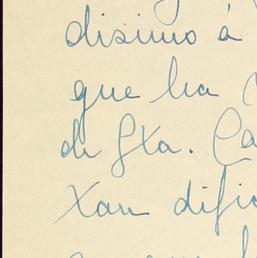 disimo á
que ha
de Gxa. Ca
Xan difi